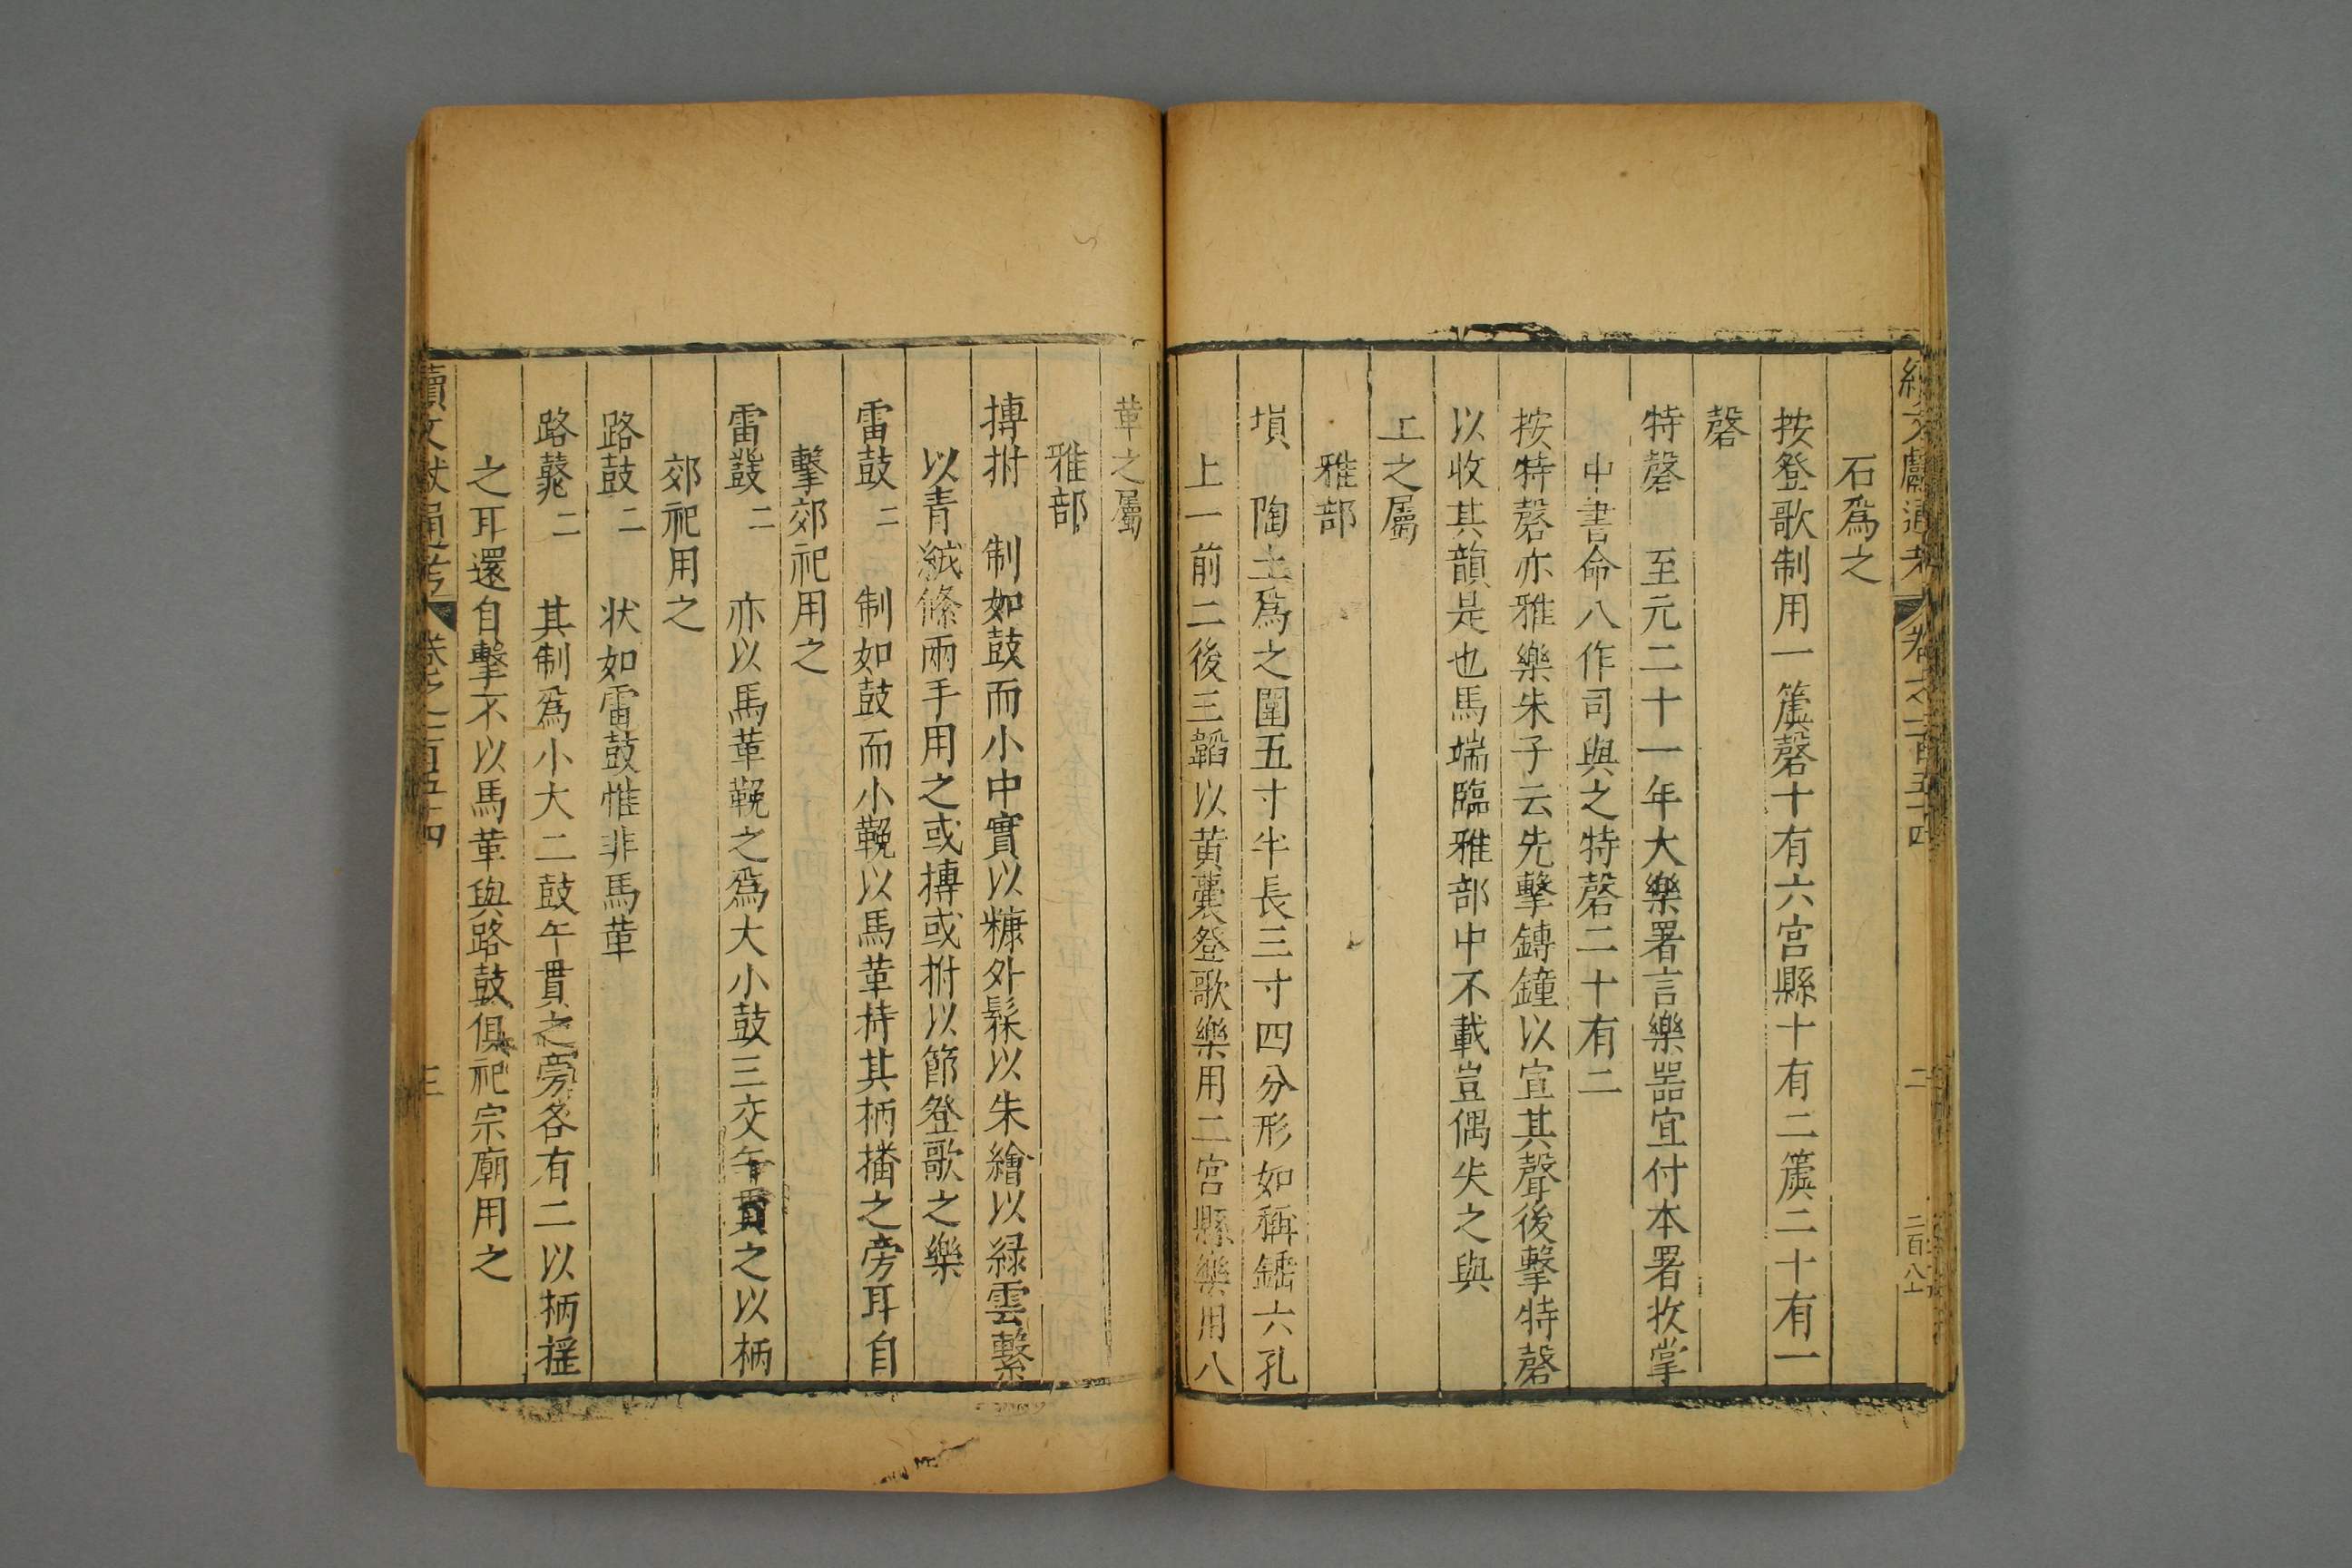 續文獻通考 卷之一百五十四 二 二百八十
石爲之
按登歌制用一簴磬十有六宫縣十有二簴二十有一
磬
特磬 至元二十一年大樂署言樂器宜付本署收掌
中書命八作司與之特磬二十有二
按特磬亦雅樂朱子云先擊鎛鐘以宣其聲後擊特磬
以收其韻是也馬端臨雅部中不載豈偶失之與
土之屬
雅部
塤 陶土爲之圍五寸半長三寸四分形如稱錘六孔
上一前二後三韜以黄囊登歌樂用二宫縣樂用八
革之屬
雅部
摶拊 制如鼓而小中實以糠外髹以朱繪以緑雲繫
以青絨絛兩手用之或摶或拊以節登歌之樂
雷鼓二 制如鼓而小鞔以馬革持其柄播之旁耳自
擊郊祀用之
雷鼗二 亦以馬革鞔之爲大小鼓三交午貫之以柄
郊祀用之
路鼓二 状如雷鼓惟非馬革
路鼗二 其制爲小大二鼓午貫之旁各有二以柄摇
之耳還自擊不以馬革與路鼓俱祀宗廟用之
續文獻通考 卷之一百五十四 三